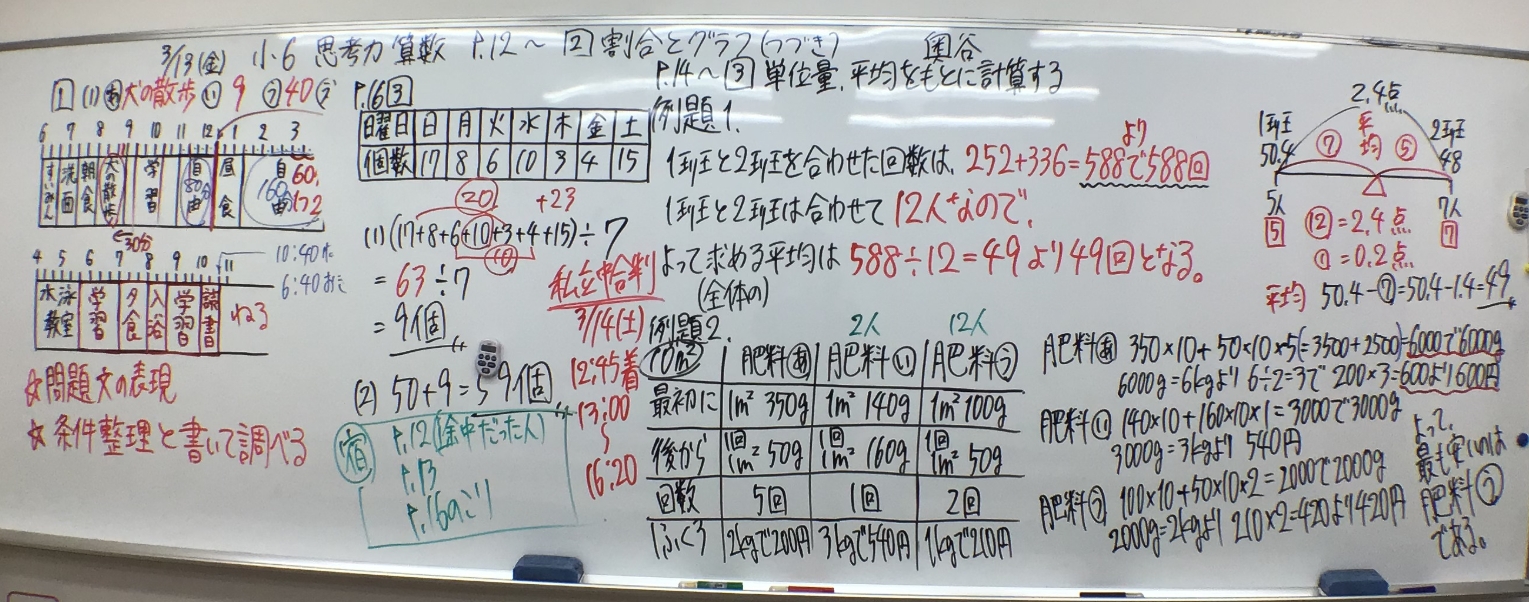 3/13(金) 小6 思考力算数 P.12〜 2 割合とグラフ(つづき) 奥谷
P.14〜 3 単位量,平均をもとに計算する
1 (1)あ犬の散歩 い 9 う 40
6 7 8 9 10 11 12 1 2 3
すいみん 洗面 朝食 犬の散歩 学習 自由 80分 昼食 自由 160分
←30分
4 5 6 7 8 9 10 11
水泳教室 学習 夕食 入浴 学習 読書 ねる
10:40ね
6:40おき
☆問題文の表現
☆条件整理と書いて調べる
P.16 3
曜日 日 月 火 水 木 金 土
個数 17 8 6 10 3 4 15
20 +23
(1) (17+8+6+10+3+4+15)÷7
10
=63÷7
=9個
(2) 50+9=59個
宿 P.12(途中だった人)
P.13
P.16のこり
私立中合判
3/14(土)
12:45着
13:00
〜
16:20
例題1.
1班と2班を合わせた回数は, 252+336=588で588回
より
1班と2班は合わせて 12人なので,
よって求める平均は 588÷12=49より49回となる。
(全体の)
2.4点
1班 50.4 ⑦ 平均 ⑤ 2班 48
5人 7人
5 ⑫=2.4点 7
①=0.2点
平均 50.4-⑦=50.4-1.4=49
例題2.
2人 12人
10m² 肥料あ 肥料い 肥料う
最初に 1m² 350g 1m² 140g 1m² 100g
後から 1回 1m² 50g 1回 1m² 160g 1回 1m² 50g
回数 5回 1回 2回
1ふくろ 2kgで200円 3kgで540円 1kgで210円
肥料あ 350×10+50×10×5(=3500+2500)=6000で6000g
6000g=6kgより 6÷2=3で 200×3=600より600円
肥料い 140×10+160×10×1=3000で3000g
3000g=3kgより 540円
肥料う 100×10+50×10×2=2000で2000g
2000g=2kgより 210×2=420より420円
よって,
最も安いのは
肥料う
である。